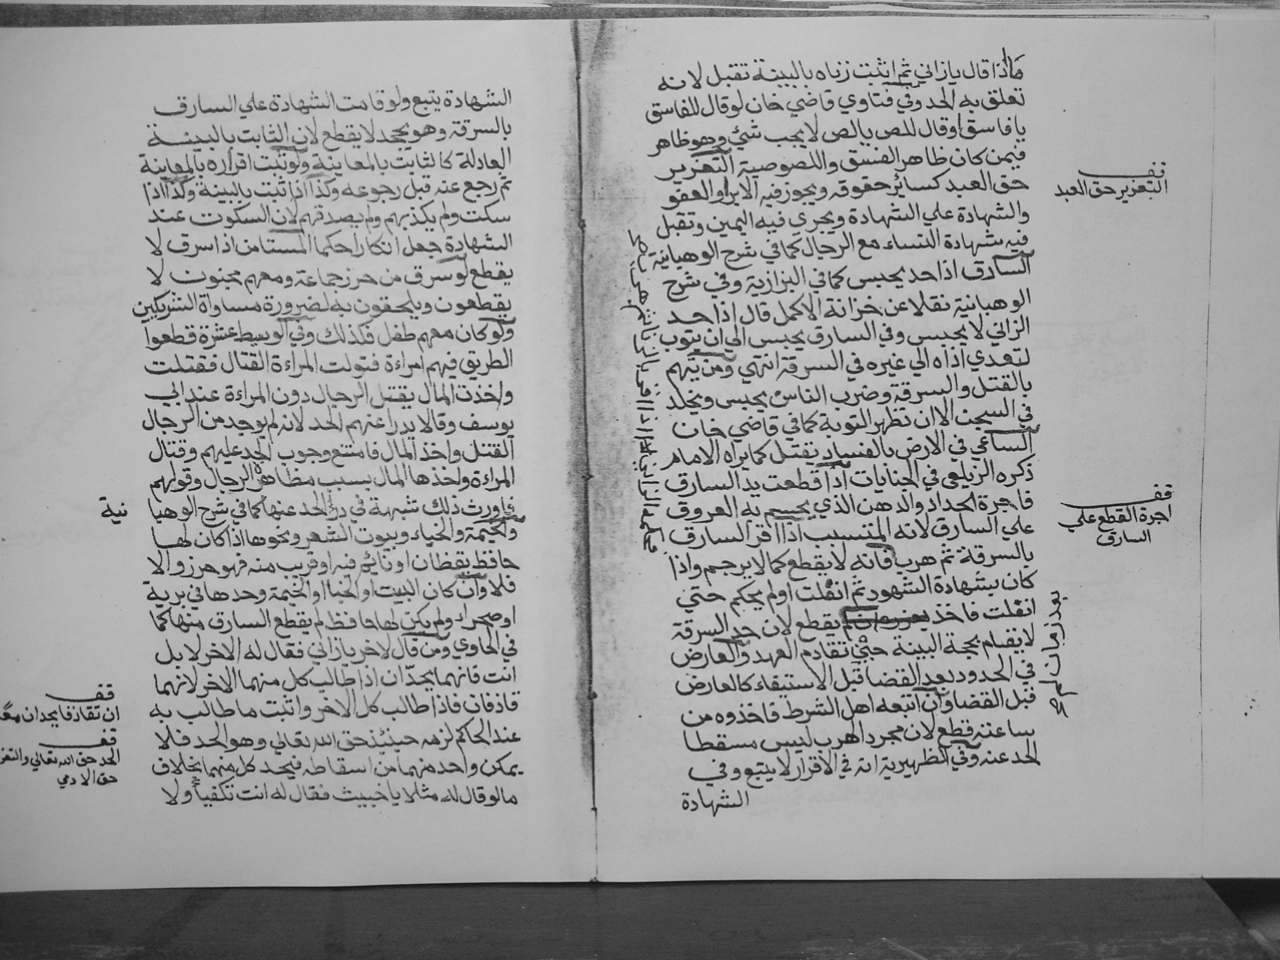 فاذا قال يازاني ثم اثبت زناه بالبينة تقبل لانه
تعلق به الحد وفي فتاوي قاضي خان لو قال للفاسق
يا فاسق او قال للص يا لص لا يجب شئ وهو ظاهر
فيمن كان ظاهر الفسق واللصوصية التعزير
حق العبد كسائر حقوقه ويجوز فيه الابرا والعفو
والشهادة علي الشهادة ويجري فيه اليمين وتقبل
فيه شهادة النساء مع الرجال كما في شرح الوهبانية
السارق اذا حد يحبس كما في البزازية وفي شرح
الوهبانية نقلا عن خزانة الاكمل قال اذا حد
الزاني لا يحبس وفي السارق يحبس الي ان يتوب
لتعدي اذاه الي غيره في السرقة انتهي ومن يتهم
بالقتل والسرقة وضرب الناس يحبس ويخلد
في السجن الا ان تظهر التوبة كما في قاضي خان
الساعي في الارض بالفساد يقتل كما يراه الامام
ذكره الزيلعي في الجنايات اذا قطعت يد السارق
فاجرة الحداد والدهن الذي يحسم به العروق
علي السارق لانه المتسبب اذا اقر السارق
بالسرقة ثم هرب فانه لا يقطع كما لا يرجم واذا
كان بشهادة الشهود ثم انفلت اولم يحكم حتي
انفلت فاخذ يقطع لان حد السرقة
لا يقام بحجة البينة حتي تقادم العهد والعارض
في الحدود بعد القضا قبل الاستيفاء كالعارض
قبل القضا وان اتبعه اهل الشرط فاخذوه من
ساعته قطع لان مجرد الهرب ليس مسقطا
الحد عنه وفي الظهيرية انه في الاقرار لا يتبع وفي
الشهادة
قف
التعزير حق العبد
قف
اجرة القطع علي
السارق
بعد زمان
الشهادة يتبع ولو قامت الشهادة علي السارق
بالسرقة وهو يجحد لا يقطع لان الثابت بالبينة
العادلة كالثابت بالمعاينة ولو ثبت اقراره بالمعاينة
ثم رجع عنه قبل رجوعه وكذا اذا ثبت بالبينة وكذا اذا
سكت ولم يكذبهم ولم يصدقهم لان السكوت عند
الشهادة جعل انكارا حكما المستامن اذا سرق لا
يقطع لو سرق من حرز جماعة ومعهم مجنون لا
يقطعون ويلحقون به لضرورة مساواة الشريكين
ولو كان معهم طفل فكذلك وفي الوسيط عشرة قطعوا
الطريق فيهم امراءة فتولت المراءة القتال فقتلت
واخذت المال يقتل الرجال دون المراءة عند ابي
يوسف وقالا يدرا عنهم الحد لانه لم يوجد من الرجال
القتل واخذ المال فامتنع وجوب الحد عليهم وقتال
المراءة واخذها المال بسبب مظاهر الرجال وقولهم
فاورث ذلك شبهة في درا الحد عنها كما في شرح الوهبا
نية
والخيمة والخباء وبيوت الشعر ونحوها اذا كان لها
حافظ يقظان او نائم فيه او قريب منه فهو حرز والا
فلا وان كان البيت او الخبا او الخيمة وحدها في برية
او صحراء ولم يكن لها حافظ لم يقطع السارق منها كما
في الحاوي ومن قال لاخر يازاني فقال له الاخر لا بل
انت فانهما يحدّان اذا طالب كل منهما الاخر لانهما
قاذفان فاذا طالب كل الاخر واثبت ما طالب به
عند الحاكم لزمه حينئذ حق الله تعالي وهو الحد فلا
يمكن واحد منهما من اسقاطه فيحد كل منهما بخلاف
ما لو قال له مثلا يا خبيث فقال له انت تكفيا ولا
قف
ان تقاذفا يحدان معًا
قف
الحد حق الله تعالي والتعز
حق الادمي